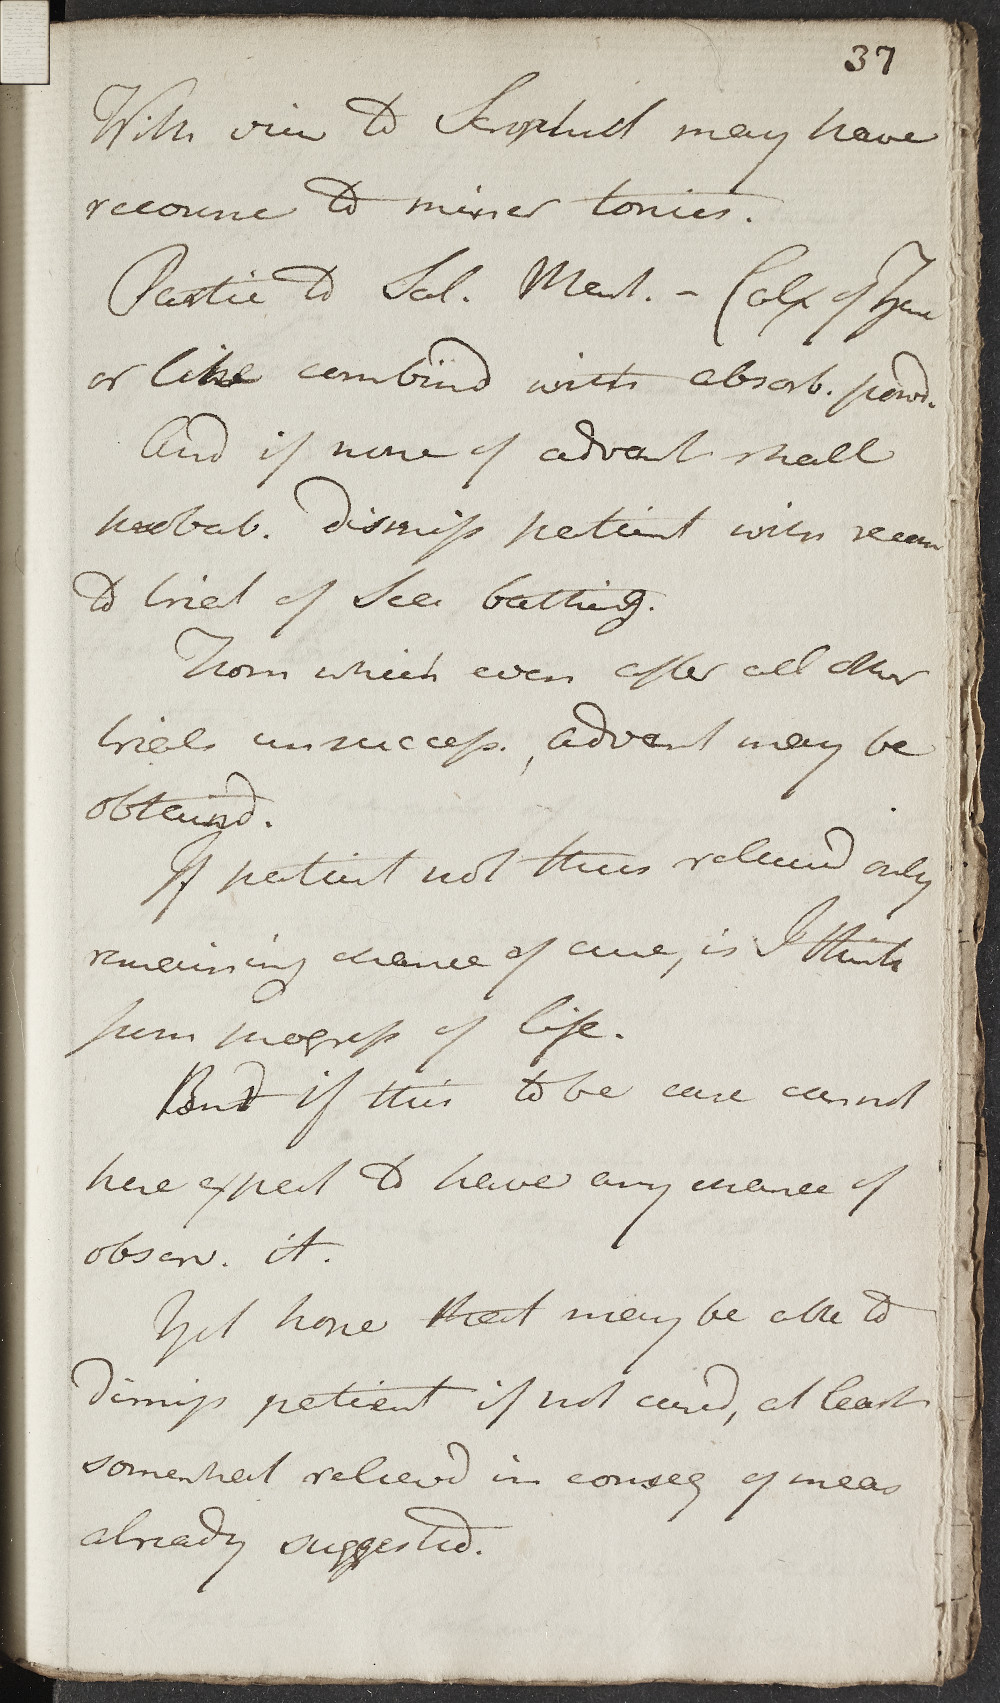 37
With view to Scrophul may have
recourse to miner tonics.
Partic to Sal. Mart. - Calx of
or like combind with absorb. powd.
And if none of advant shall
probab. dismiss patient with recom
to trial of Sea bathing.
From which even after all other
trials unsuccess., advant may be
obtaind.
If patient not thus relievd only
remaining chance of cure, is I think
from progress of life.
But if this to be case cannot
here expect to have any chance of
observ. it.
Yet hope that may be able to
dismiss patient if not cured, at least
somewhat relievd in conseq of meas
already suggested.